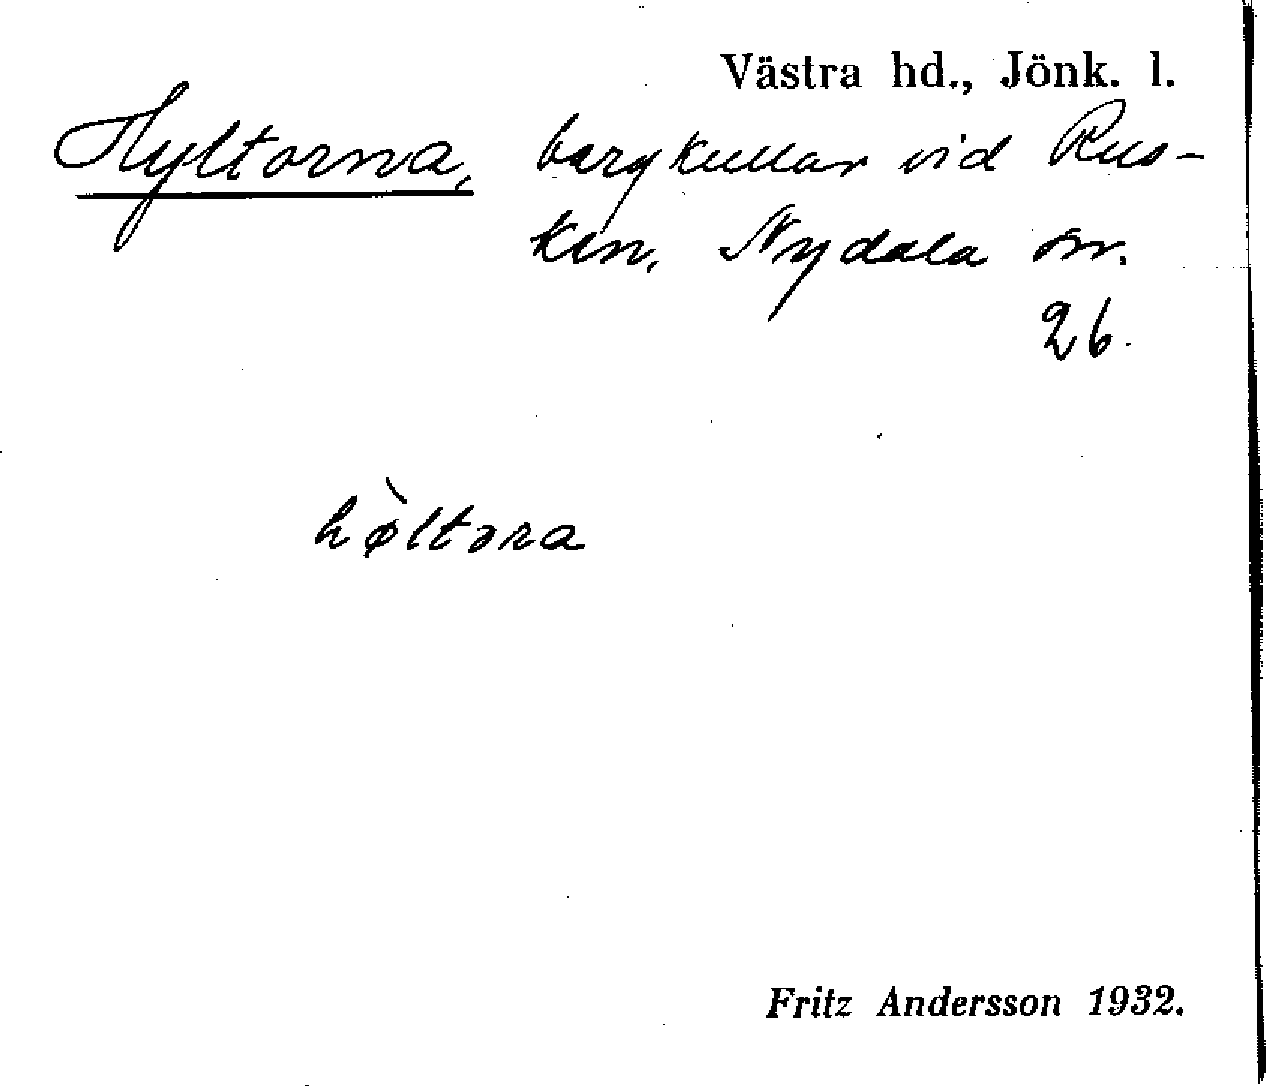 Västra hd., Jönk. l.
Hyltorna, bergkullar vid Rus-
ken, Nydala sn.
26.
hø̀ltəra
Fritz Andersson 1932.